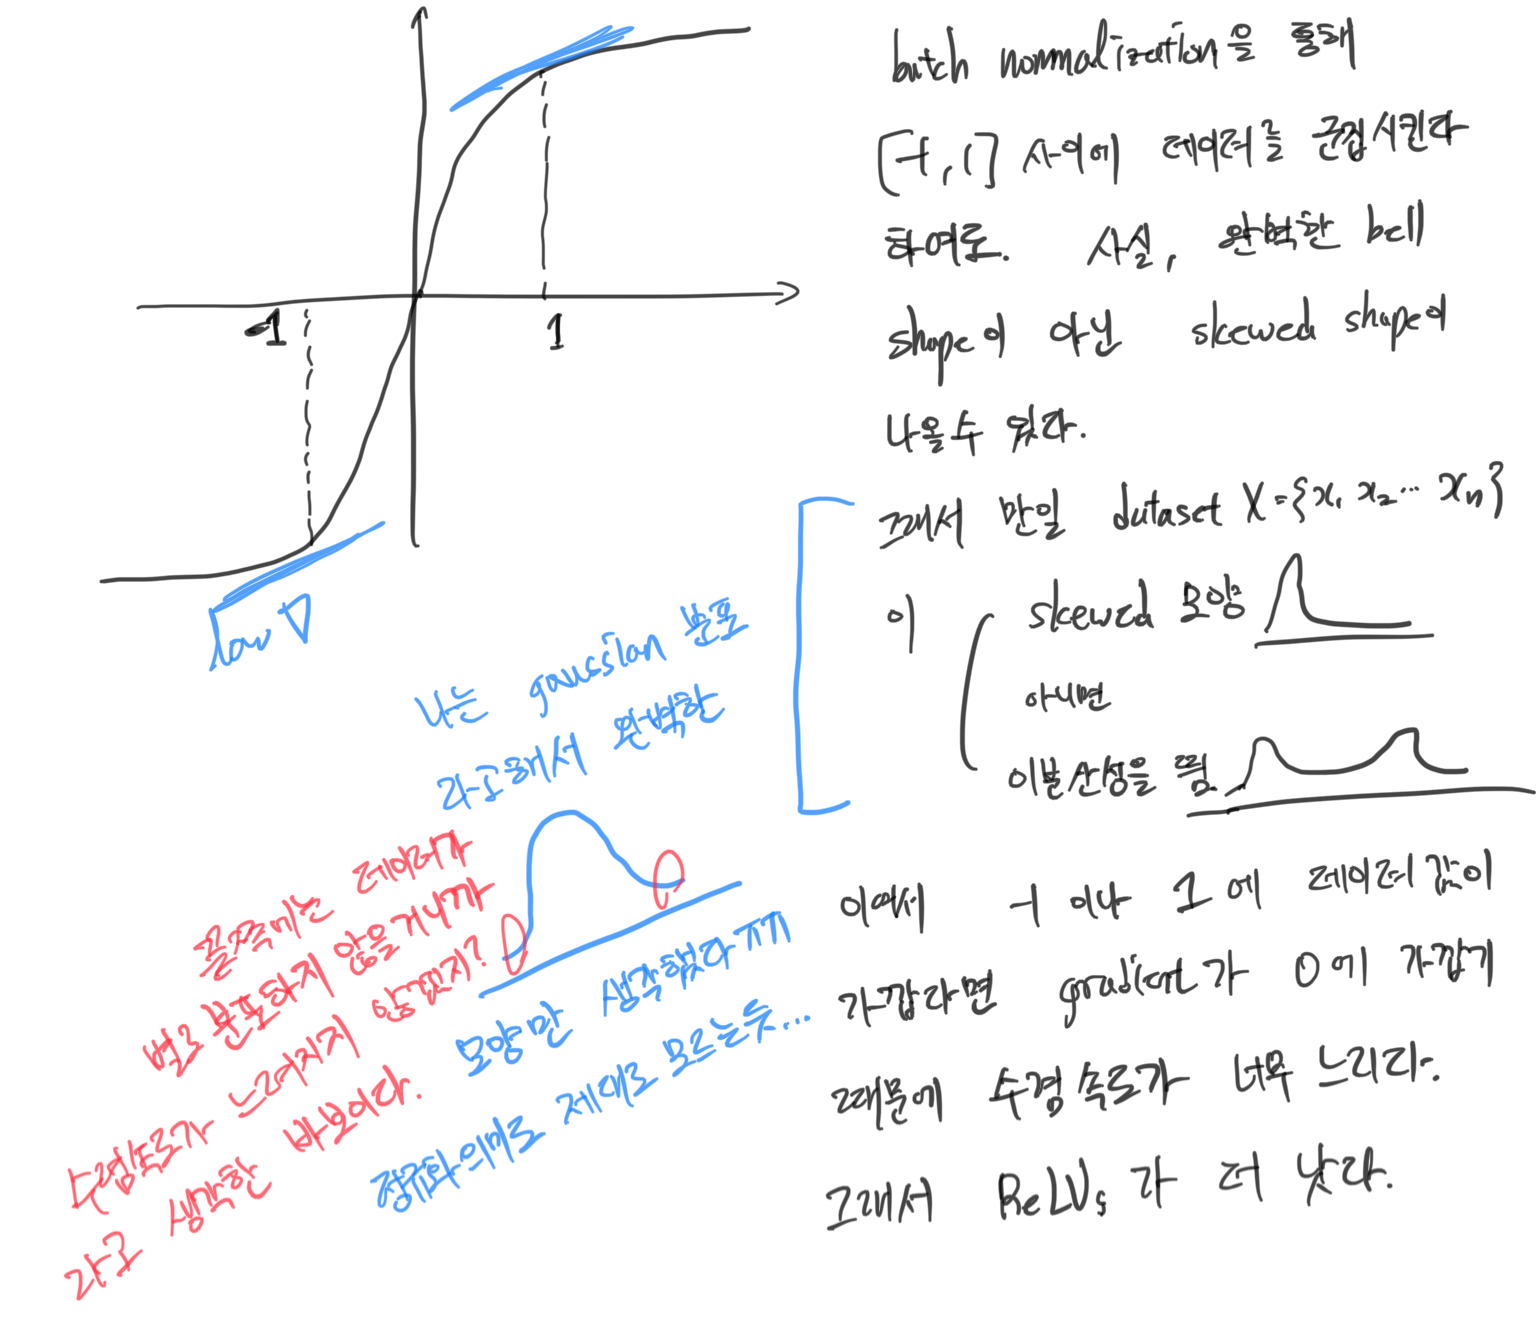 batch normalization을 통해
[-1, 1] 사이에 데이터를 군집시킨다
하여도. 사실, 완벽한 bell
shape이 아닌 skewed shape이
나올수 있다.
그래서 만일 dataset X={x₁ x₂... xₙ}
이 skewed 모양
아니면
이분산성을 띔
이여서 -1 이나 1에 데이터 값이
가깝다면 gradient가 0에 가깝기
때문에 수렴속도가 너무 느리다.
그래서 ReLUs가 더 낫다.
-1
1
low ∇
나는 gaussian 분포
라고해서 완벽한
모양만 생각했다ㅠㅠ
정규화의미도 제대로 모르는듯...
끝쪽에는 데이터가
별로 분포하지 않을거니까
수렴속도가 느려지지 않겠지?
라고 생각한 바보이다.